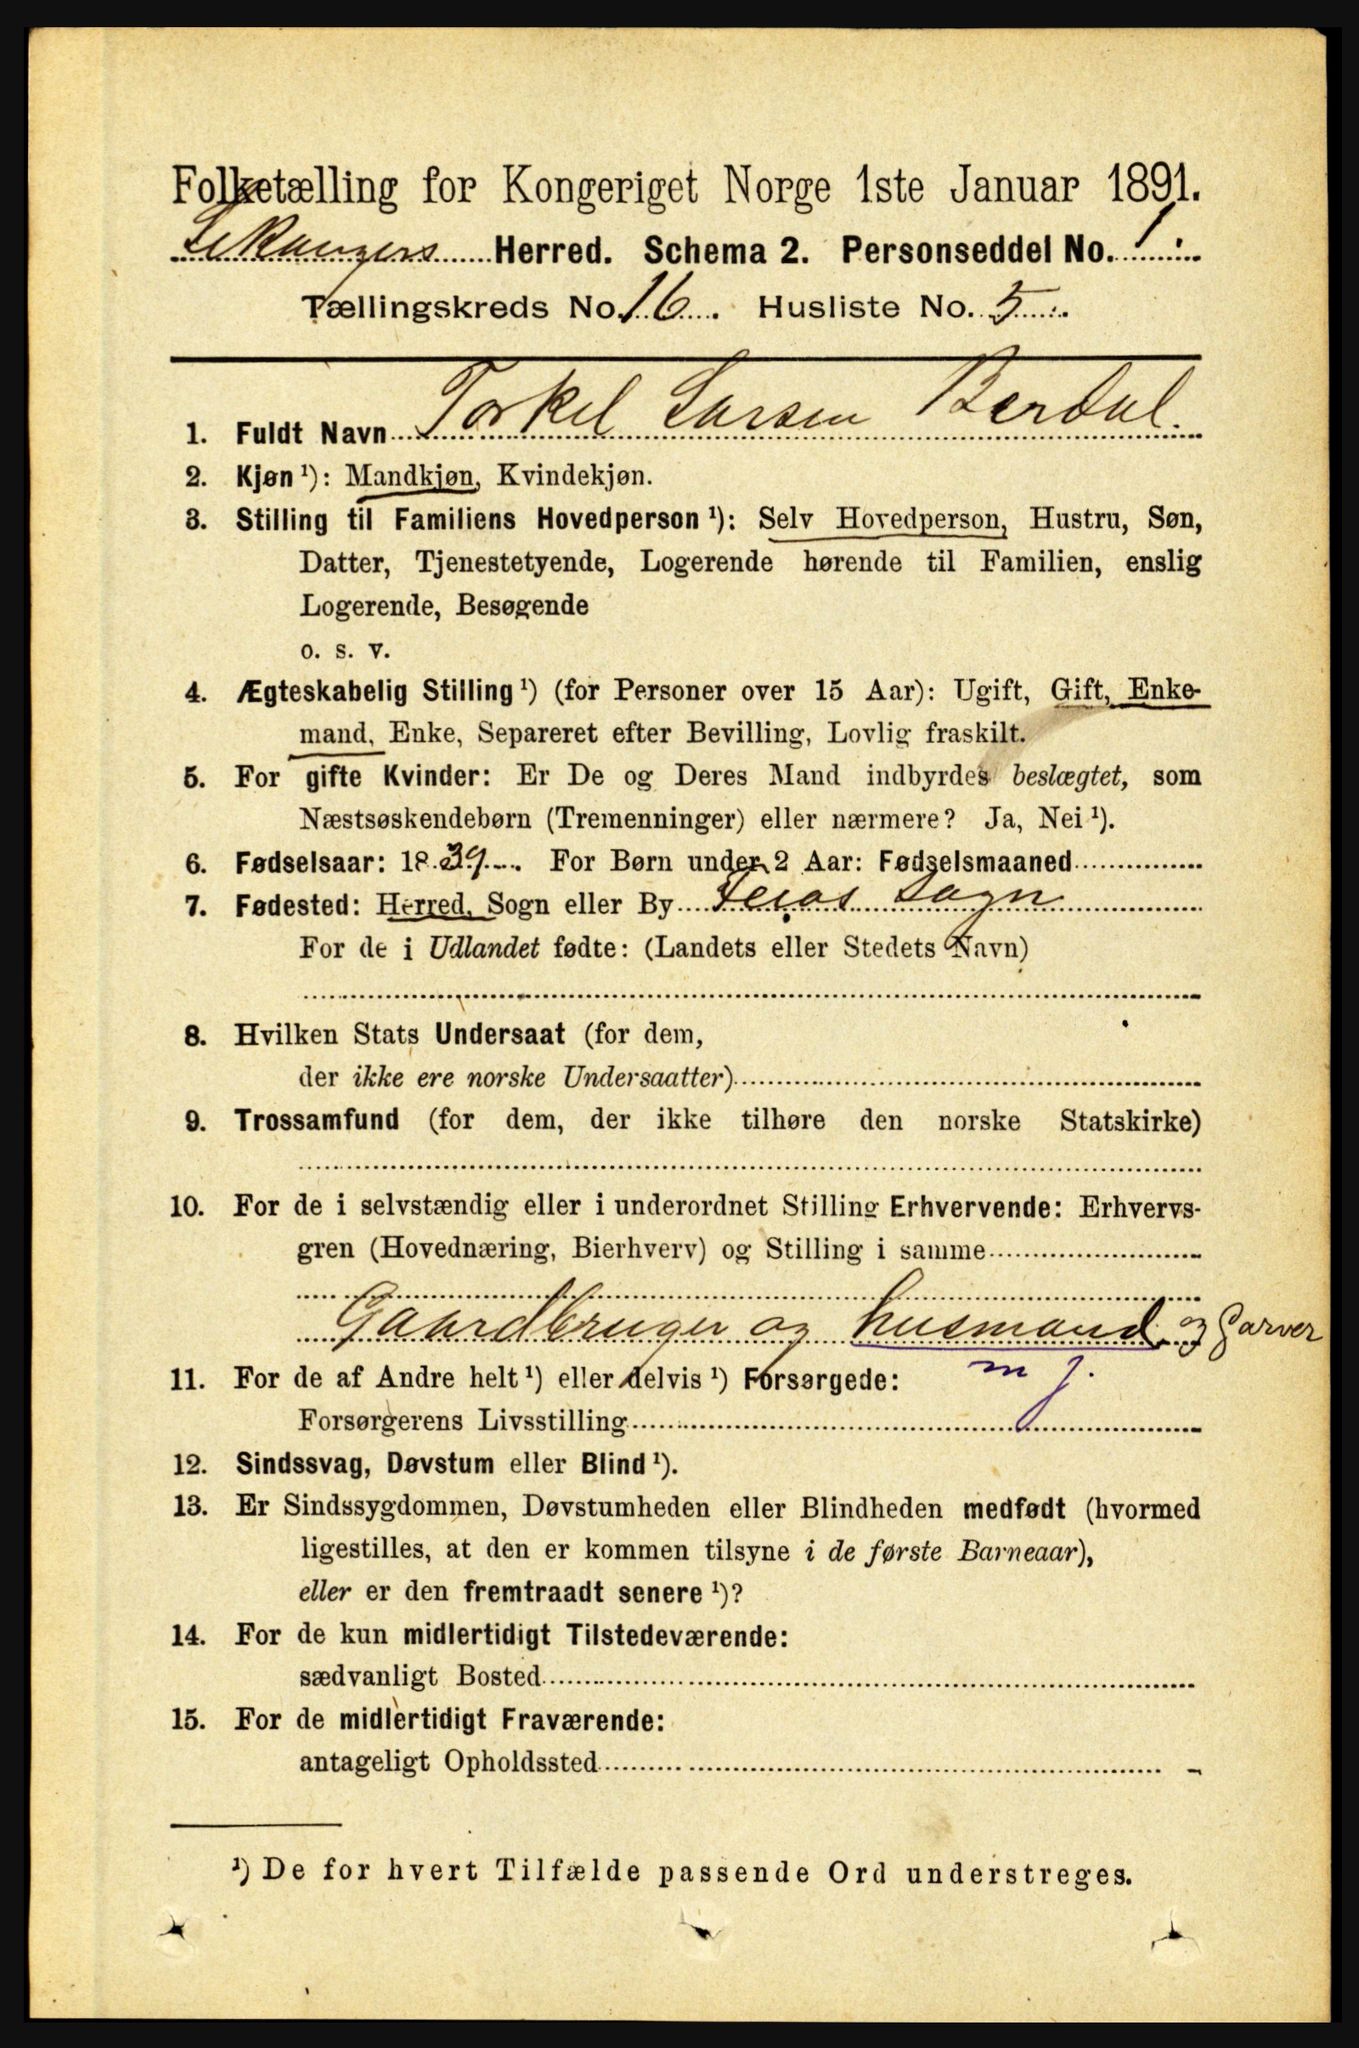 Folketælling for Kongeriget Norge 1ste Januar 1891.
Lekangers Herred. Schema 2. Personseddel No. 1.
Tællingskreds No. 16. Husliste No. 5.
1. Fuldt Navn Torkel Larsen Berdal.
2. Kjøn ¹): Mandkjøn, Kvindekjøn.
3. Stilling til Familiens Hovedperson ¹): Selv Hovedperson, Hustru, Søn,
Datter, Tjenestetyende, Logerende hørende til Familien, enslig
Logerende, Besøgende
o. s. v.
4. Ægteskabelig Stilling ¹) (for Personer over 15 Aar): Ugift, Gift, Enke-
mand, Enke, Separeret efter Bevilling, Lovlig fraskilt.
5. For gifte Kvinder: Er De og Deres Mand indbyrdes beslægtet, som
Næstsøskendebørn (Tremenninger) eller nærmere? Ja, Nei ¹).
6. Fødselsaar: 1839. For Børn under 2 Aar: Fødselsmaaned
7. Fødested: Herred, Sogn eller By Feios Sogn
For de i Udlandet fødte: (Landets eller Stedets Navn)
8. Hvilken Stats Undersaat (for dem,
der ikke ere norske Undersaatter)
9. Trossamfund (for dem, der ikke tilhøre den norske Statskirke)
10. For de i selvstændig eller i underordnet Stilling Erhvervende: Erhvervs-
gren (Hovednæring, Bierhverv) og Stilling i samme
Gaardbruger og husmand og Garver
m j.
11. For de af Andre helt ¹) eller delvis ¹) Forsørgede:
Forsørgerens Livsstilling
12. Sindssvag, Døvstum eller Blind ¹).
13. Er Sindssygdommen, Døvstumheden eller Blindheden medfødt (hvormed
ligestilles, at den er kommen tilsyne i de første Barneaar),
eller er den fremtraadt senere ¹)?
14. For de kun midlertidigt Tilstedeværende:
sædvanligt Bosted
15. For de midlertidigt Fraværende:
antageligt Opholdssted
¹) De for hvert Tilfælde passende Ord understreges.